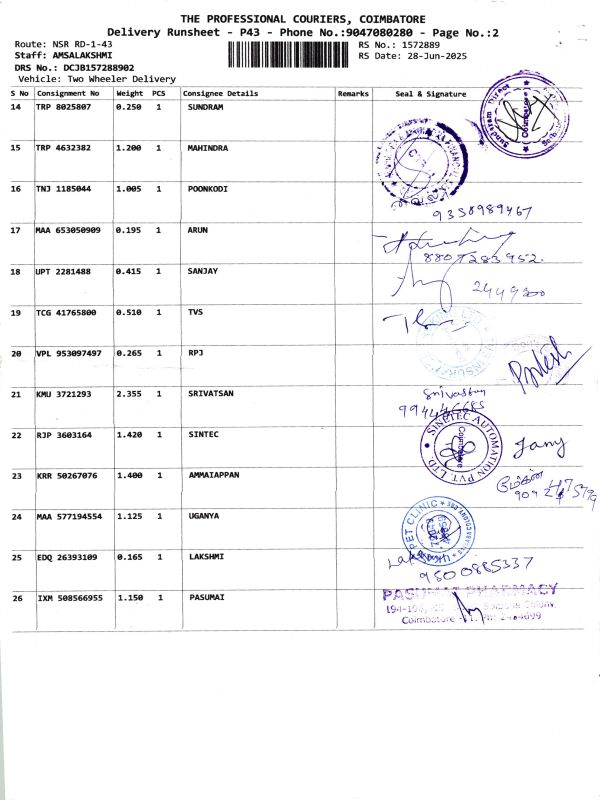 THE PROFESSIONAL COURIERS, COIMBATORE
Delivery Runsheet - P43 - Phone No.:9047080280 - Page No.:2
Route: NSR RD-1-43 RS No.: 1572889
Staff: AMSALAKSHMI RS Date: 28-Jun-2025
DRS No.: DCJB157288902
Vehicle: Two Wheeler Delivery
S No Consignment No Weight PCS Consignee Details Remarks Seal & Signature
14 TRP 8025807 0.250 1 SUNDRAM
Coimbatore
15 TRP 4632382 1.200 1 MAHINDRA
16 TNJ 1185044 1.005 1 POONKODI
9358989467
17 MAA 653050909 0.195 1 ARUN
8807283952
18 UPT 2281488 0.415 1 SANJAY
2449200
19 TCG 41765800 0.510 1 TVS
20 VPL 953097497 0.265 1 RPJ
21 KMU 3721293 2.355 1 SRIVATSAN
Srivastsan
22 RJP 3603164 1.420 1 SINTEC
SINTEC AUTOMATION PVT. LTD.
Coimbatore
23 KRR 50267076 1.400 1 AMMAIAPPAN
24 MAA 577194554 1.125 1 UGANYA
PET CLINIC
25 EDQ 26393109 0.165 1 LAKSHMI
9500885337
26 IXM 508566955 1.150 1 PASUMAI
PASUMAI PHARMACY
Colony,
Coimbatore